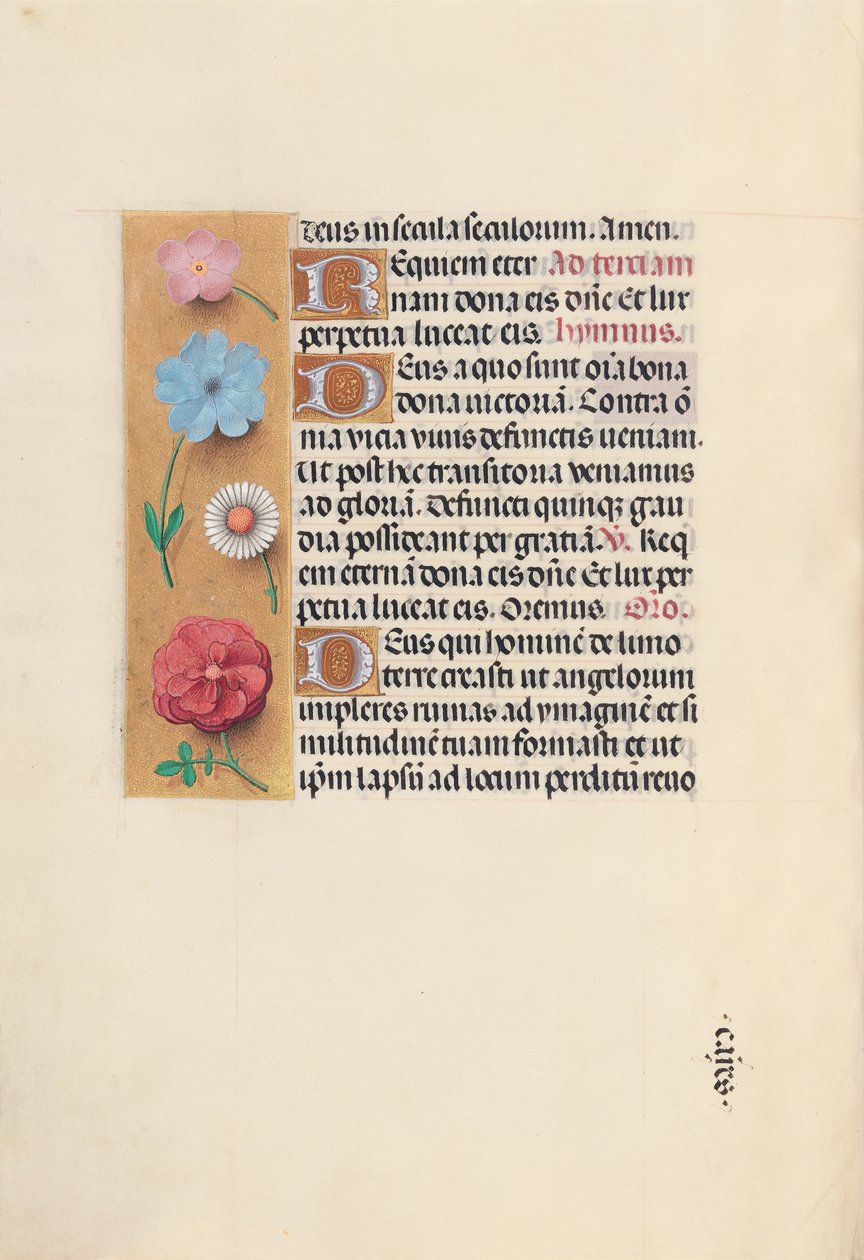 deus in secula seculorum. Amen.
REquiem eter Ad terciam
nam dona eis dn̄e Et lux
perpetua luceat eis. hymnus.
DEus a quo sunt oīa bona
dona uictoriā. Contra ō
nia vicia viuis defunctis ueniam.
Ut post hec transitoria veniamus
ad gloriā. Defuncti quinqꝫ gau
dia possideant per gratiā. V. Req
em eternā dona eis dn̄e Et lux per
petua luceat eis. Oremus. Oṙo.
DEus qui hominē de limo
terre creasti ut angelorum
impleres ruinas ad ymaginē et si
militudinē tuam formasti et ut
ip̄m lapsū ad locum perditū reuo